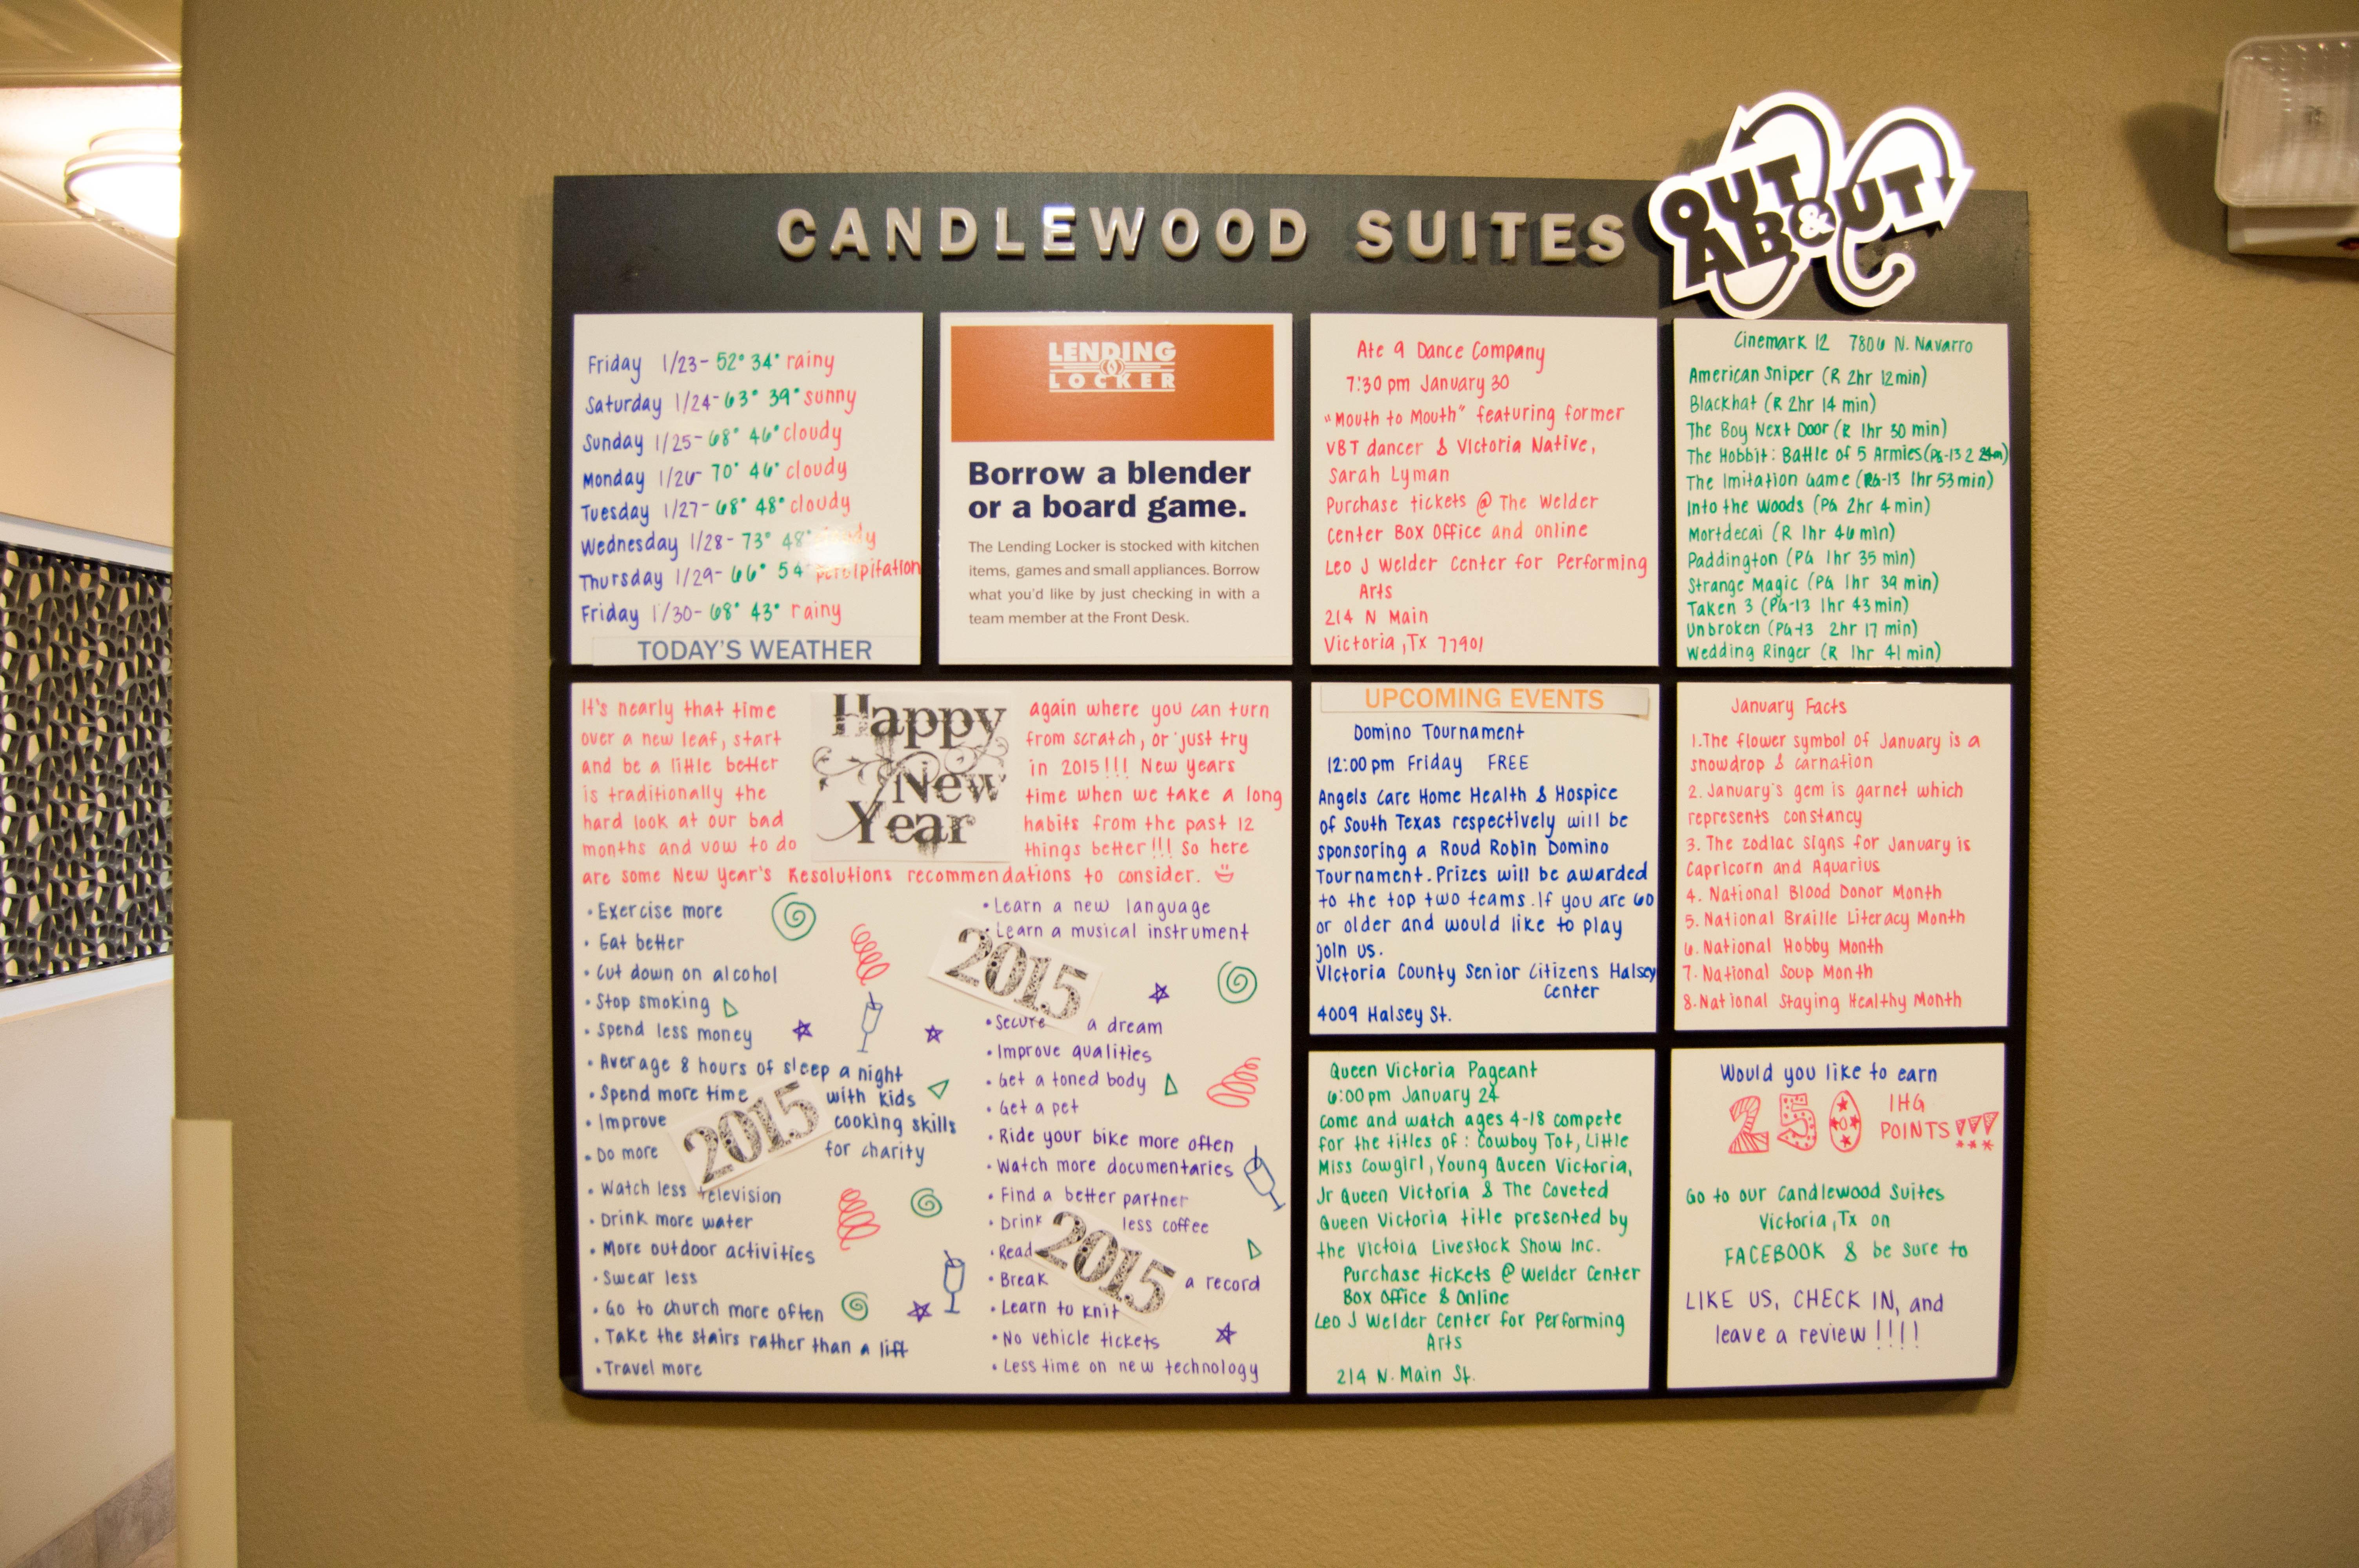 CANDLEWOOD SUITES
OUT
AB&UT
Friday 1/23- 52° 34° rainy
Saturday 1/24- 63° 39° sunny
Sunday 1/25- 68° 46° cloudy
Monday 1/26- 70° 46° cloudy
Tuesday 1/27- 68° 48° cloudy
Wednesday 1/28- 73° 48°
Thursday 1/29- 66° 54°
Friday 1/30- 68° 43° rainy
TODAY'S WEATHER
LENDING
LOCKER
Borrow a blender
or a board game.
The Lending Locker is stocked with kitchen
items, games and small appliances. Borrow
what you'd like by just checking in with a
team member at the Front Desk.
Ate 9 Dance Company
7:30 pm January 30
"Mouth to Mouth" featuring former
VBT dancer & Victoria Native,
Sarah Lyman
Purchase tickets @ The Welder
Center Box Office and online
Leo J Welder Center for Performing
Arts
214 N Main
Victoria, Tx 77901
Cinemark 12 7806 N. Navarro
American Sniper (R 2hr 12min)
Blackhat (R 2hr 14 min)
The Boy Next Door (R 1hr 30 min)
The Hobbit: Battle of 5 Armies (PG-13 2
The Imitation Game (PG-13 1hr 53min)
Into the Woods (PG 2hr 4 min)
Mortdecai (R 1hr 46 min)
Paddington (PG 1hr 35 min)
Strange Magic (PG 1hr 39 min)
Taken 3 (PG-13 1hr 43min)
Unbroken (PG-13 2hr 17 min)
Wedding Ringer (R 1hr 41 min)
It's nearly that time again where you can turn
over a new leaf, start from scratch, or just try
and be a little better in 2015!!! New years
is traditionally the time when we take a long
hard look at our bad habits from the past 12
months and vow to do things better!!! So here
are some New Year's Resolutions recommendations to consider.
Happy
New
Year
• Exercise more
• Eat better
• Cut down on alcohol
• Stop smoking
• Spend less money
• Average 8 hours of sleep a night
• Spend more time with kids
• Improve cooking skills
• Do more for charity
2015
• Watch less television
• Drink more water
• More outdoor activities
• Swear less
• Go to church more often
• Take the stairs rather than a lift
• Travel more
• Learn a new language
• Learn a musical instrument
2015
• Secure a dream
• Improve qualities
• Get a toned body
• Get a pet
• Ride your bike more often
• Watch more documentaries
• Find a better partner
• Drink less coffee
• Read
2015
• Break a record
• Learn to knit
• No vehicle tickets
• Less time on new technology
UPCOMING EVENTS
Domino Tournament
12:00 pm Friday FREE
Angels Care Home Health & Hospice
of South Texas respectively will be
sponsoring a Roud Robin Domino
Tournament. Prizes will be awarded
to the top two teams. If you are 60
or older and would like to play
join us.
Victoria County Senior Citizens Halsey
Center
4009 Halsey St.
January Facts
1. The flower symbol of January is a
snowdrop & carnation
2. January's gem is garnet which
represents constancy
3. The zodiac signs for January is
Capricorn and Aquarius
4. National Blood Donor Month
5. National Braille Literacy Month
6. National Hobby Month
7. National Soup Month
8. National Staying Healthy Month
Queen Victoria Pageant
6:00 pm January 24
Come and watch ages 4-18 compete
for the titles of: Cowboy Tot, Little
Miss Cowgirl, Young Queen Victoria,
Jr Queen Victoria & The Coveted
Queen Victoria title presented by
the Victoia Livestock Show Inc.
Purchase tickets @ Welder Center
Box Office & Online
Leo J Welder Center for Performing
Arts
214 N. Main St.
Would you like to earn
250 IHG
POINTS!!!
Go to our Candlewood Suites
Victoria, Tx on
FACEBOOK & be sure to
LIKE US, CHECK IN, and
leave a review!!!!